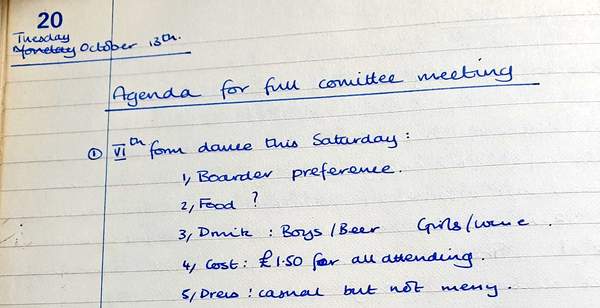 20
Tuesday
Monday October 13th.
Agenda for full comittee meeting
① VIth form dance this Saturday :
1, Boarder preference.
2, Food ?
3, Drink : Boys/Beer Girls/wine .
4, Cost : £1.50 for all attending .
5, Dress : casual but not messy .